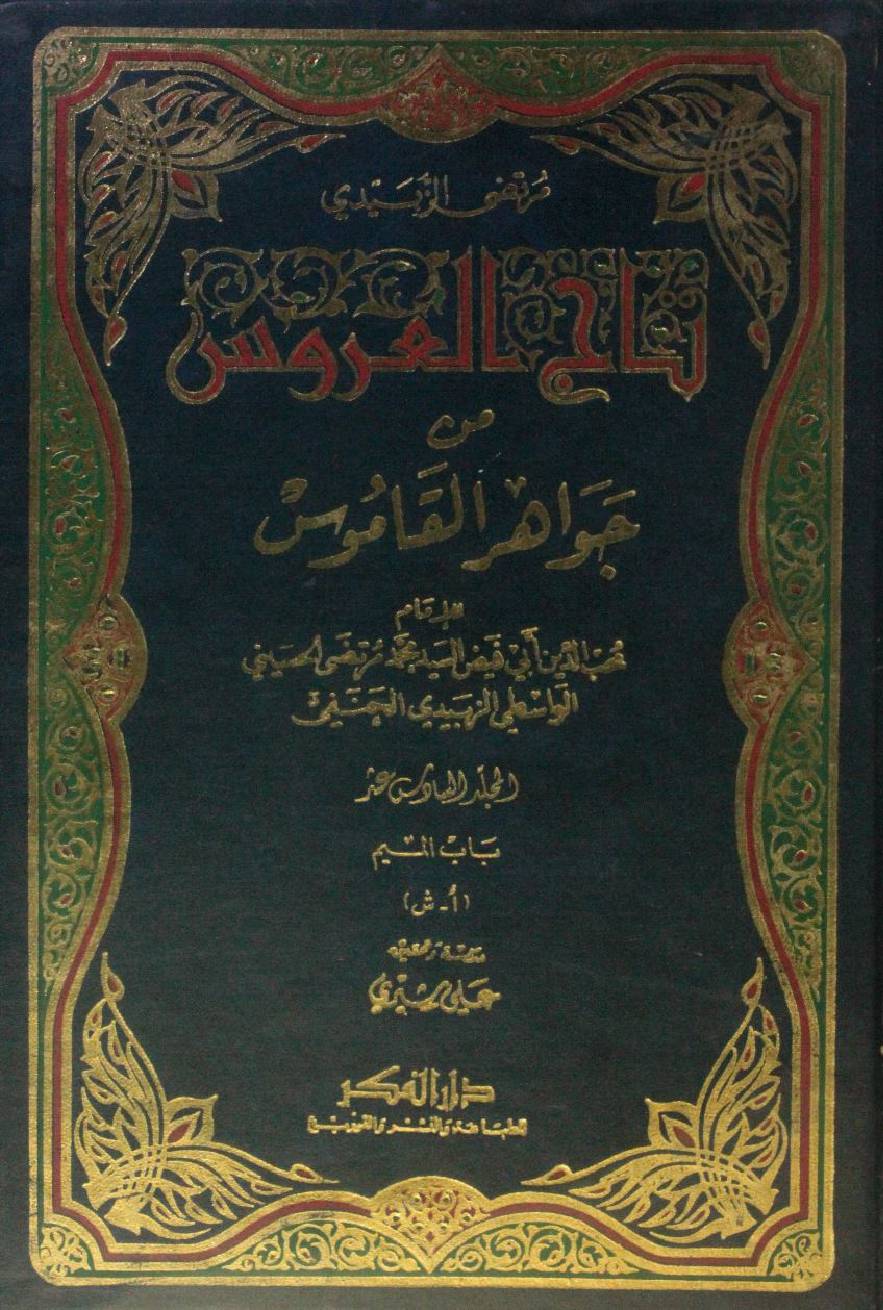 مُرتضى الزَّبَيْدي
تاج العروس
من
جَوَاهر القَامُوسْ
للإمَام
محبّ الدّين أَبي فَيض السّيد محمّد مُرتضَى الحسَيني
الوَاسْطي الزبيدي الحنَفي
المجلّد السادس عشر
بَابْ الميْم
(أ - ش)
دراسَة وتحقيق
عَلي شيري
دار الفكر
للطباعة والنشر والتوزيع